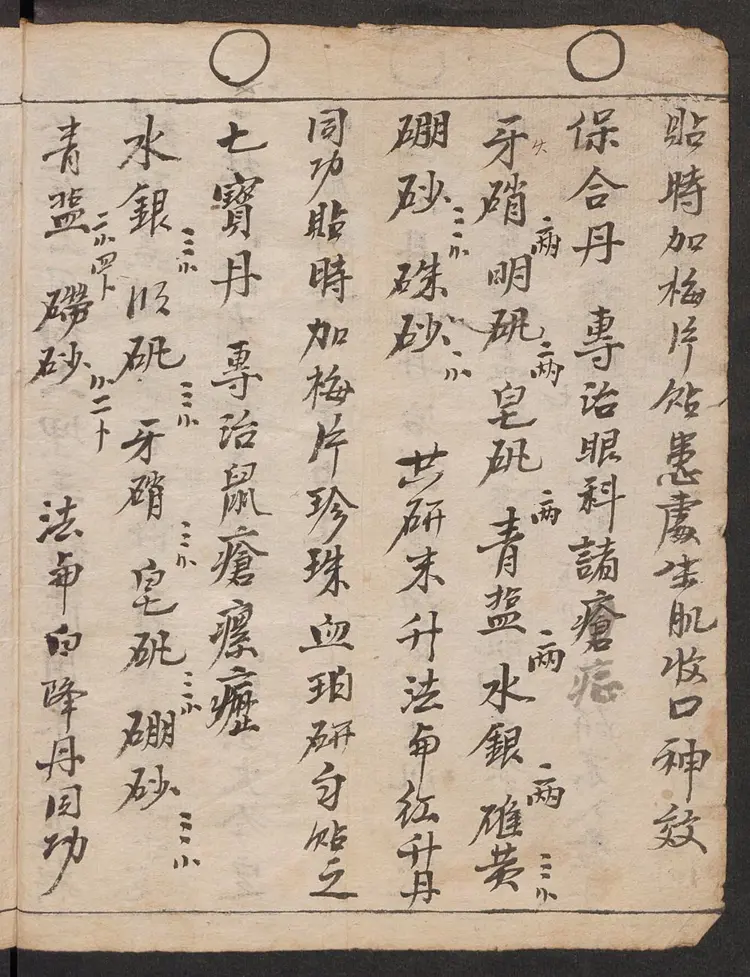 貼時加梅片貼患處生肌收口神效
保合丹 專治眼科諸瘡
牙硝二两明矾二两皂矾二两青盐二两水銀二两雄黄三小
硼砂三小硃砂二小 共研末升法命紅升丹
同功貼時加梅片珍珠血珀研匀貼之
七寶丹 專治鼠瘡瘰癧
水銀三小 矾三小牙硝三小皂矾三小硼砂三小
青盐二小四卜磠砂小二卜 法命白降丹同功